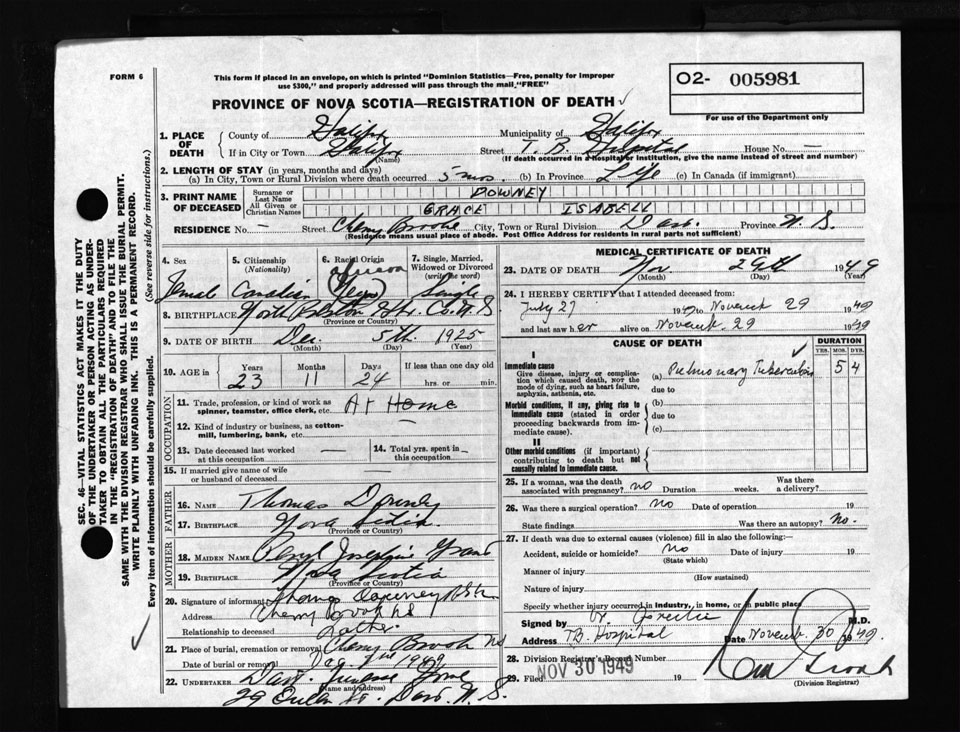 FORM 6
This form if placed in an envelope, on which is printed "Dominion Statistics—Free, penalty for improper
use $300," and properly addressed will pass through the mail "FREE"
O2- 005981
For use of the Department only
PROVINCE OF NOVA SCOTIA—REGISTRATION OF DEATH
1. PLACE OF DEATH
County of Halifax Municipality of Halifax
If in City or Town Halifax (Name) Street T. B. Hospital House No. —
(If death occurred in a hospital or institution, give the name instead of street and number)
2. LENGTH OF STAY (in years, months and days)
(a) In City, Town or Rural Division where death occurred 5 mos. (b) In Province Life (c) In Canada (if immigrant)
3. PRINT NAME OF DECEASED
Surname or Last Name DOWNEY
All Given or Christian Names GRACE ISABELL
RESIDENCE No. — Street Cherry Brook City, Town or Rural Division Dart. Province N. S.
(Residence means usual place of abode. Post Office Address for residents in rural parts not sufficient)
4. Sex Female
5. Citizenship (Nationality) Canadian
6. Racial Origin African (Negro)
7. Single, Married, Widowed or Divorced (write the word) Single
8. BIRTHPLACE North Preston Hfx. Co. N. S.
(Province or Country)
9. DATE OF BIRTH Dec. 5th. 1925
(Month) (Day) (Year)
10. AGE in Years 23 Months 11 Days 24 If less than one day old
hrs. or min.
OCCUPATION
11. Trade, profession, or kind of work as
spinner, teamster, office clerk, etc. At Home
12. Kind of industry or business, as cotton-
mill, lumbering, bank, etc. —
13. Date deceased last worked
at this occupation —
14. Total yrs. spent in
this occupation —
15. If married give name of wife
or husband of deceased
FATHER
16. NAME Thomas Downey
17. BIRTHPLACE Nova Scotia
MOTHER
18. MAIDEN NAME Josephine Grant
19. BIRTHPLACE Nova Scotia
(Province or Country)
20. Signature of informant Thomas Downey
Address Cherry Brook
Relationship to deceased Father
21. Place of burial, cremation or removal Cherry Brook NS
Date of burial or removal Dec
22. UNDERTAKER Dart. Funeral Home
(Name and address)
29 Queen St. Dart. N. S.
MEDICAL CERTIFICATE OF DEATH
23. DATE OF DEATH Nov. 29th 1949
(Month) (Day) (Year)
24. I HEREBY CERTIFY that I attended deceased from:
July 27 1949 to November 29 1949
and last saw her alive on November 29 1949
CAUSE OF DEATH
DURATION
YRS. MOS. DYS.
I
Immediate cause
Give disease, injury or compli-
cation which caused death, NOT the
mode of dying, such as heart failure,
asphyxia, asthenia, etc.
(a) Pulmonary Tuberculosis 5 4
due to
Morbid conditions, if any, giving rise to
immediate cause (stated in order
proceeding backwards from im-
mediate cause).
(b)
due to
(c)
II
Other morbid conditions (if important)
contributing to death but not
causally related to immediate cause.
25. If a woman, was the death
associated with pregnancy? no Duration weeks. Was there
a delivery?
26. Was there a surgical operation? no Date of operation 19
State findings Was there an autopsy? no.
27. If death was due to external causes (violence) fill in also the following:—
Accident, suicide or homicide? no Date of injury 19
(State which)
Manner of injury
(How sustained)
Nature of injury
Specify whether injury occurred in industry, in home, or in public place
Signed by M.D.
Address T.B. Hospital Date November 30 1949.
28. Division Registrar's Record Number
29. Filed NOV 30 1949 19
(Division Registrar)
SEC. 46—VITAL STATISTICS ACT MAKES IT THE DUTY
OF THE UNDERTAKER OR PERSON ACTING AS UNDER-
TAKER TO OBTAIN ALL THE PARTICULARS REQUIRED
IN THE "REGISTRATION OF DEATH" AND TO FILE THE
SAME WITH THE DIVISION REGISTRAR WHO SHALL ISSUE THE BURIAL PERMIT.
WRITE PLAINLY WITH UNFADING INK. THIS IS A PERMANENT RECORD.
Every item of information should be carefully supplied. (See reverse side for instructions.)